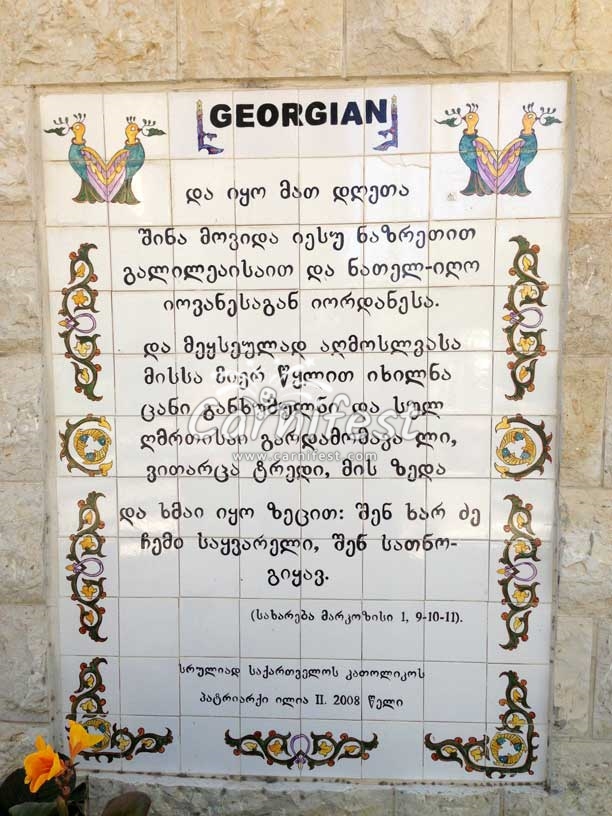 GEORGIAN
და იყო მათ დღეთა
შინა მოვიდა იესუ ნაზრეთით
გალილეაისაით და ნათელ-იღო
იოვანესაგან იორდანესა.
და მეყსეულად აღმოსლვასა
მისსა მიერ წყლით იხილნა
ცანი განხუმულნი და სულ
ღმრთისაი გარდამომავა ლი,
ვითარცა ტრედი, მის ზედა
და ხმაი იყო ზეცით: შენ ხარ ძე
ჩემი საყვარელი, შენ სათნო-
გიყავ.
(სახარება მარკოზისი 1, 9-10-11).
სრულიად საქართველოს კათოლიკოს
პატრიარქი ილია II. 2008 წელი
Carnifest
www.carnifest.com